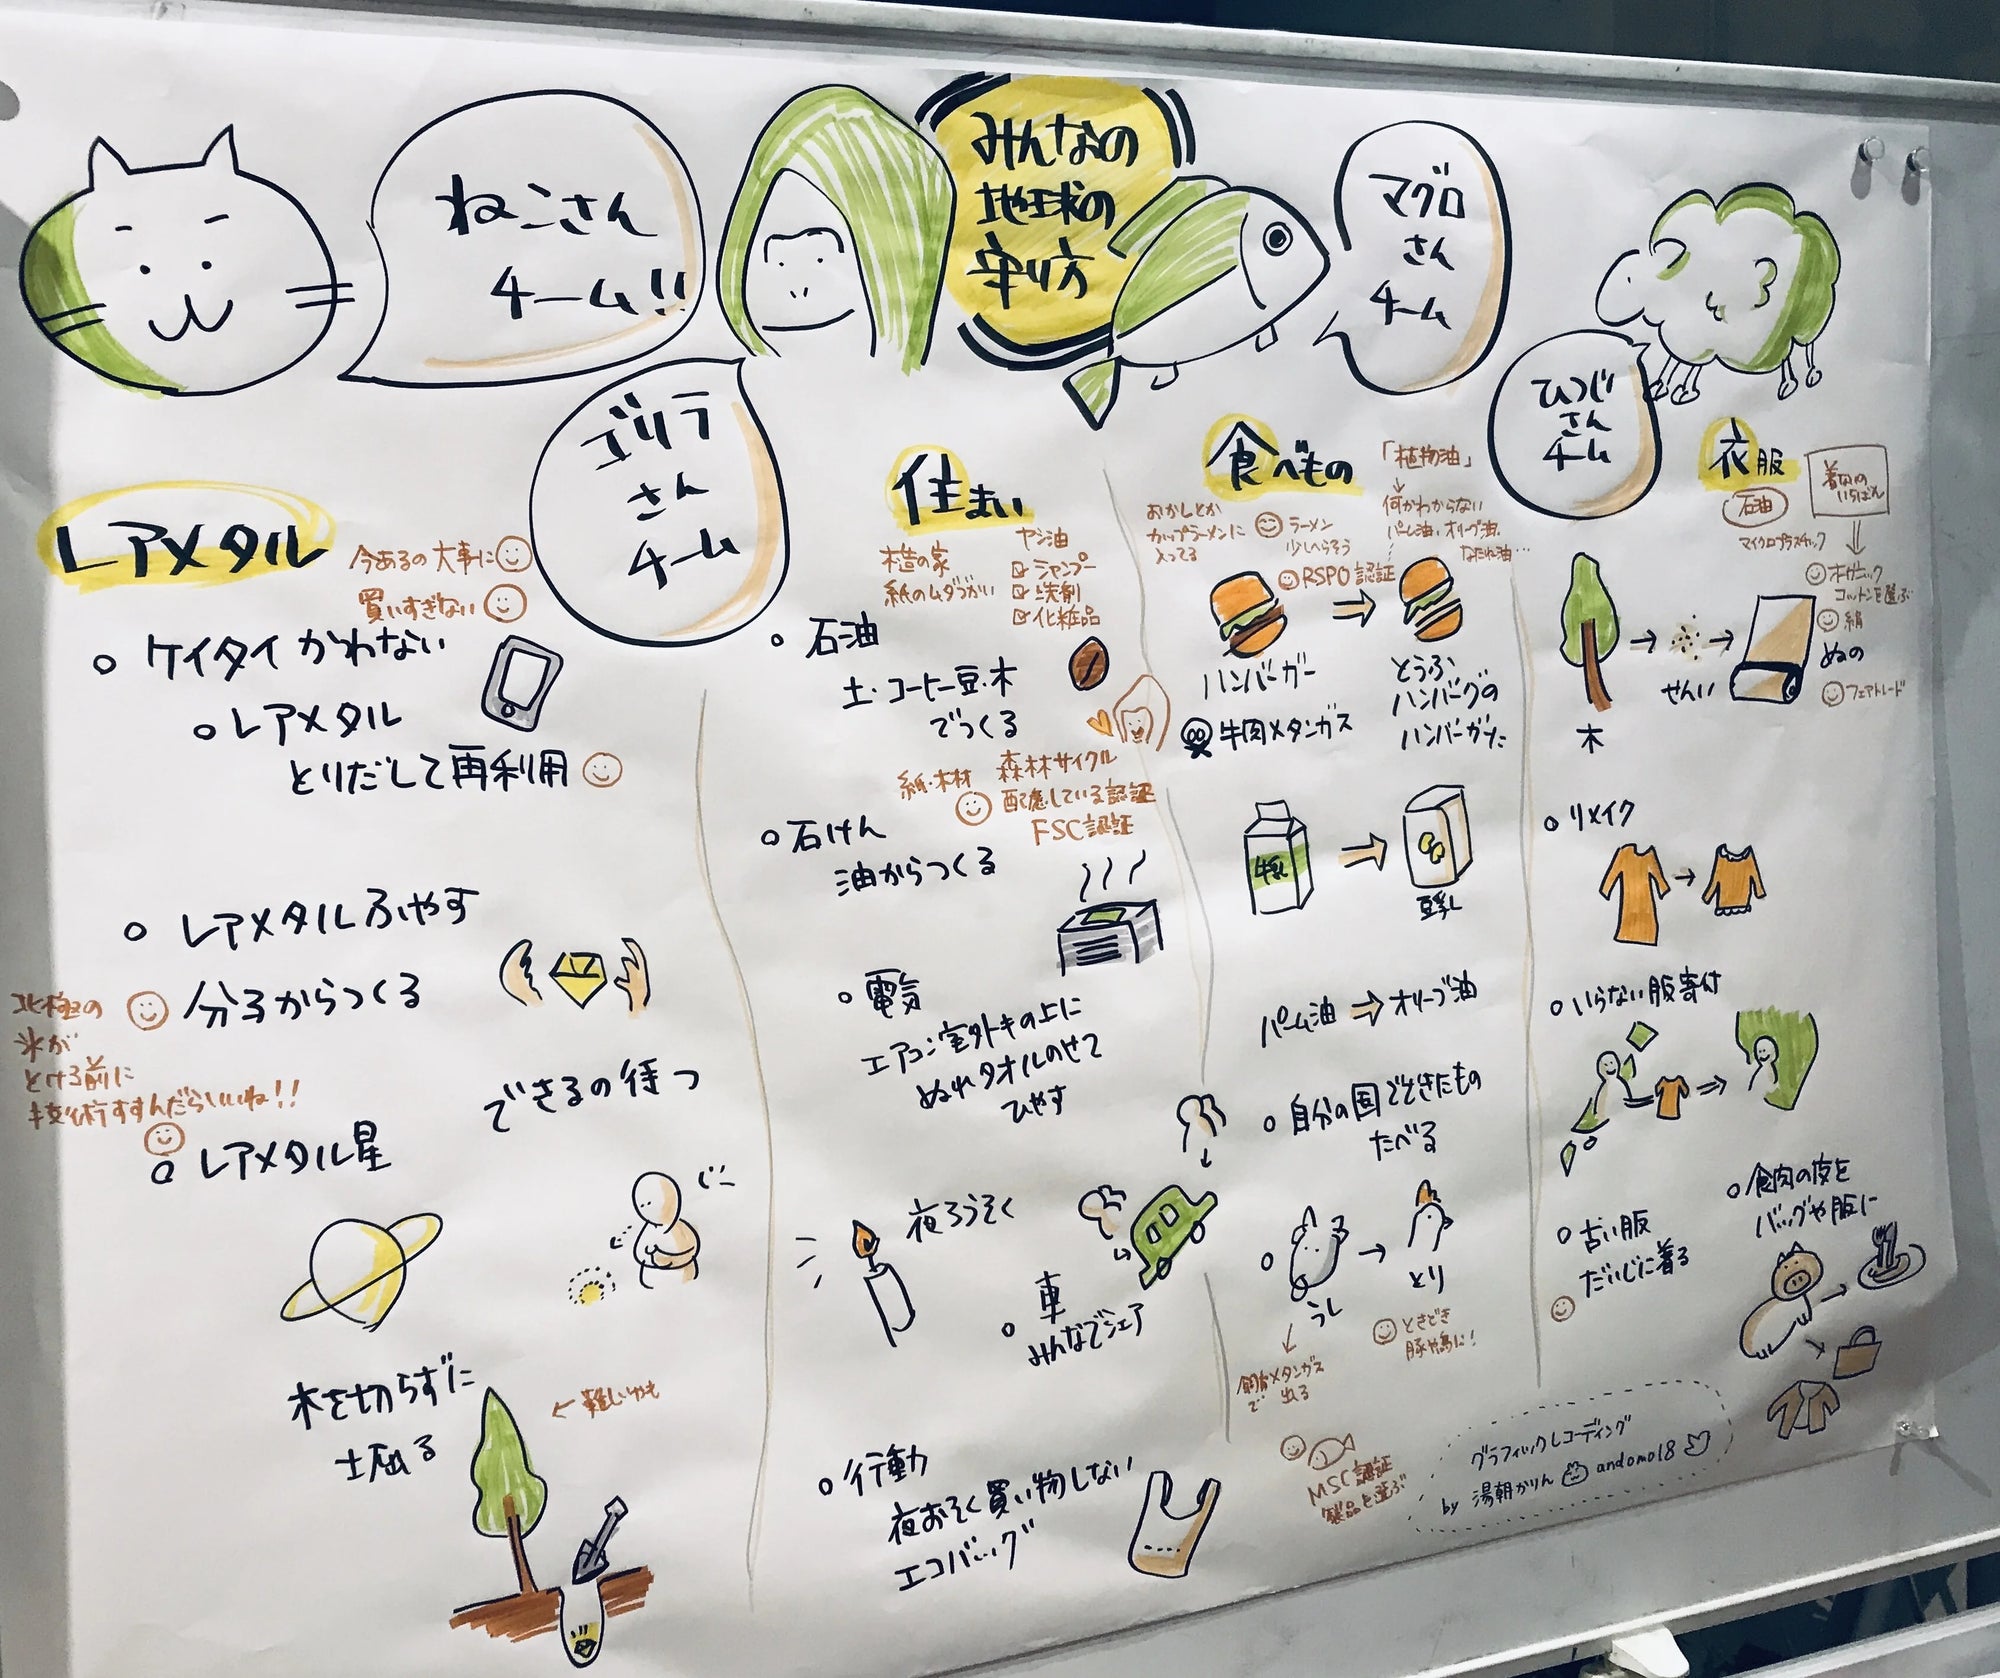 みんなの
地球の
守り方
ねこさん
チーム!!
ゴリラ
さん
チーム
マグロ
さん
チーム
ひつじ
さん
チーム
レアメタル
今あるの大事に
買いすぎない
ケイタイかわない
レアメタル
とりだして再利用
レアメタルふやす
分子からつくる
北極の
氷が
とける前に
技術すすんだらいいね!!
できるの待つ
レアメタル星
木を切らずに
土掘る
← 難しいかも
住まい
木造の家
紙のムダづかい
ヤシ油
シャンプー
洗剤
化粧品
石油
土・コーヒー豆・木
でつくる
紙・木材
森林サイクル
配慮している認証
FSC認証
石けん
油からつくる
電気
エアコン室外キの上に
ぬれタオルのせて
ひやす
夜ろうそく
車
みんなでシェア
行動
夜おそく買い物しない
エコバッグ
食べもの
おかしとか
カップラーメンに
入ってる
ラーメン
少しへらそう
RSPO認証
「植物油」
何かわからない
パーム油・オリーブ油・
なたね油…
ハンバーガー
牛肉メタンガス
とうふ
ハンバーグの
ハンバーガーだ
牛乳
豆乳
パーム油 ⇒ オリーブ油
自分の国でできたもの
たべる
うし → とり
飼育メタンガス
で 出る
ときどき
豚や鳥に!
MSC認証
製品を選ぶ
衣服
石油
マイクロプラスチック
オーガニック
コットンを選ぶ
絹
フェアトレード
木
せんい
ぬの
リメイク
いらない服寄付
古い服
だいじに着る
食肉の皮を
バッグや服に
グラフィックレコーディング
by 湯朝かりん andomo18